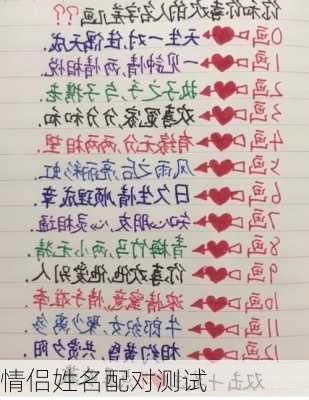 你和你喜欢的人名字差几画??
0画 天生一对,佳偶天成.
1画 一见钟情,两情相悦.
2画 执子之手,与子携老.
3画 欢喜冤家,分分和和.
4画 有缘无分,两两相望.
5画 风雨之后,亮丽彩虹.
6画 日久生情,顺理成章.
7画 知心朋友,心灵相通.
8画 青梅竹马,两小无猜
9画 你喜欢他,他爱别人
10画 浓情蜜意,情
11画 牛郎织女,聚少离多
12画 相约黄昏,共赏夕阳
双击+
情侣姓名配对测试